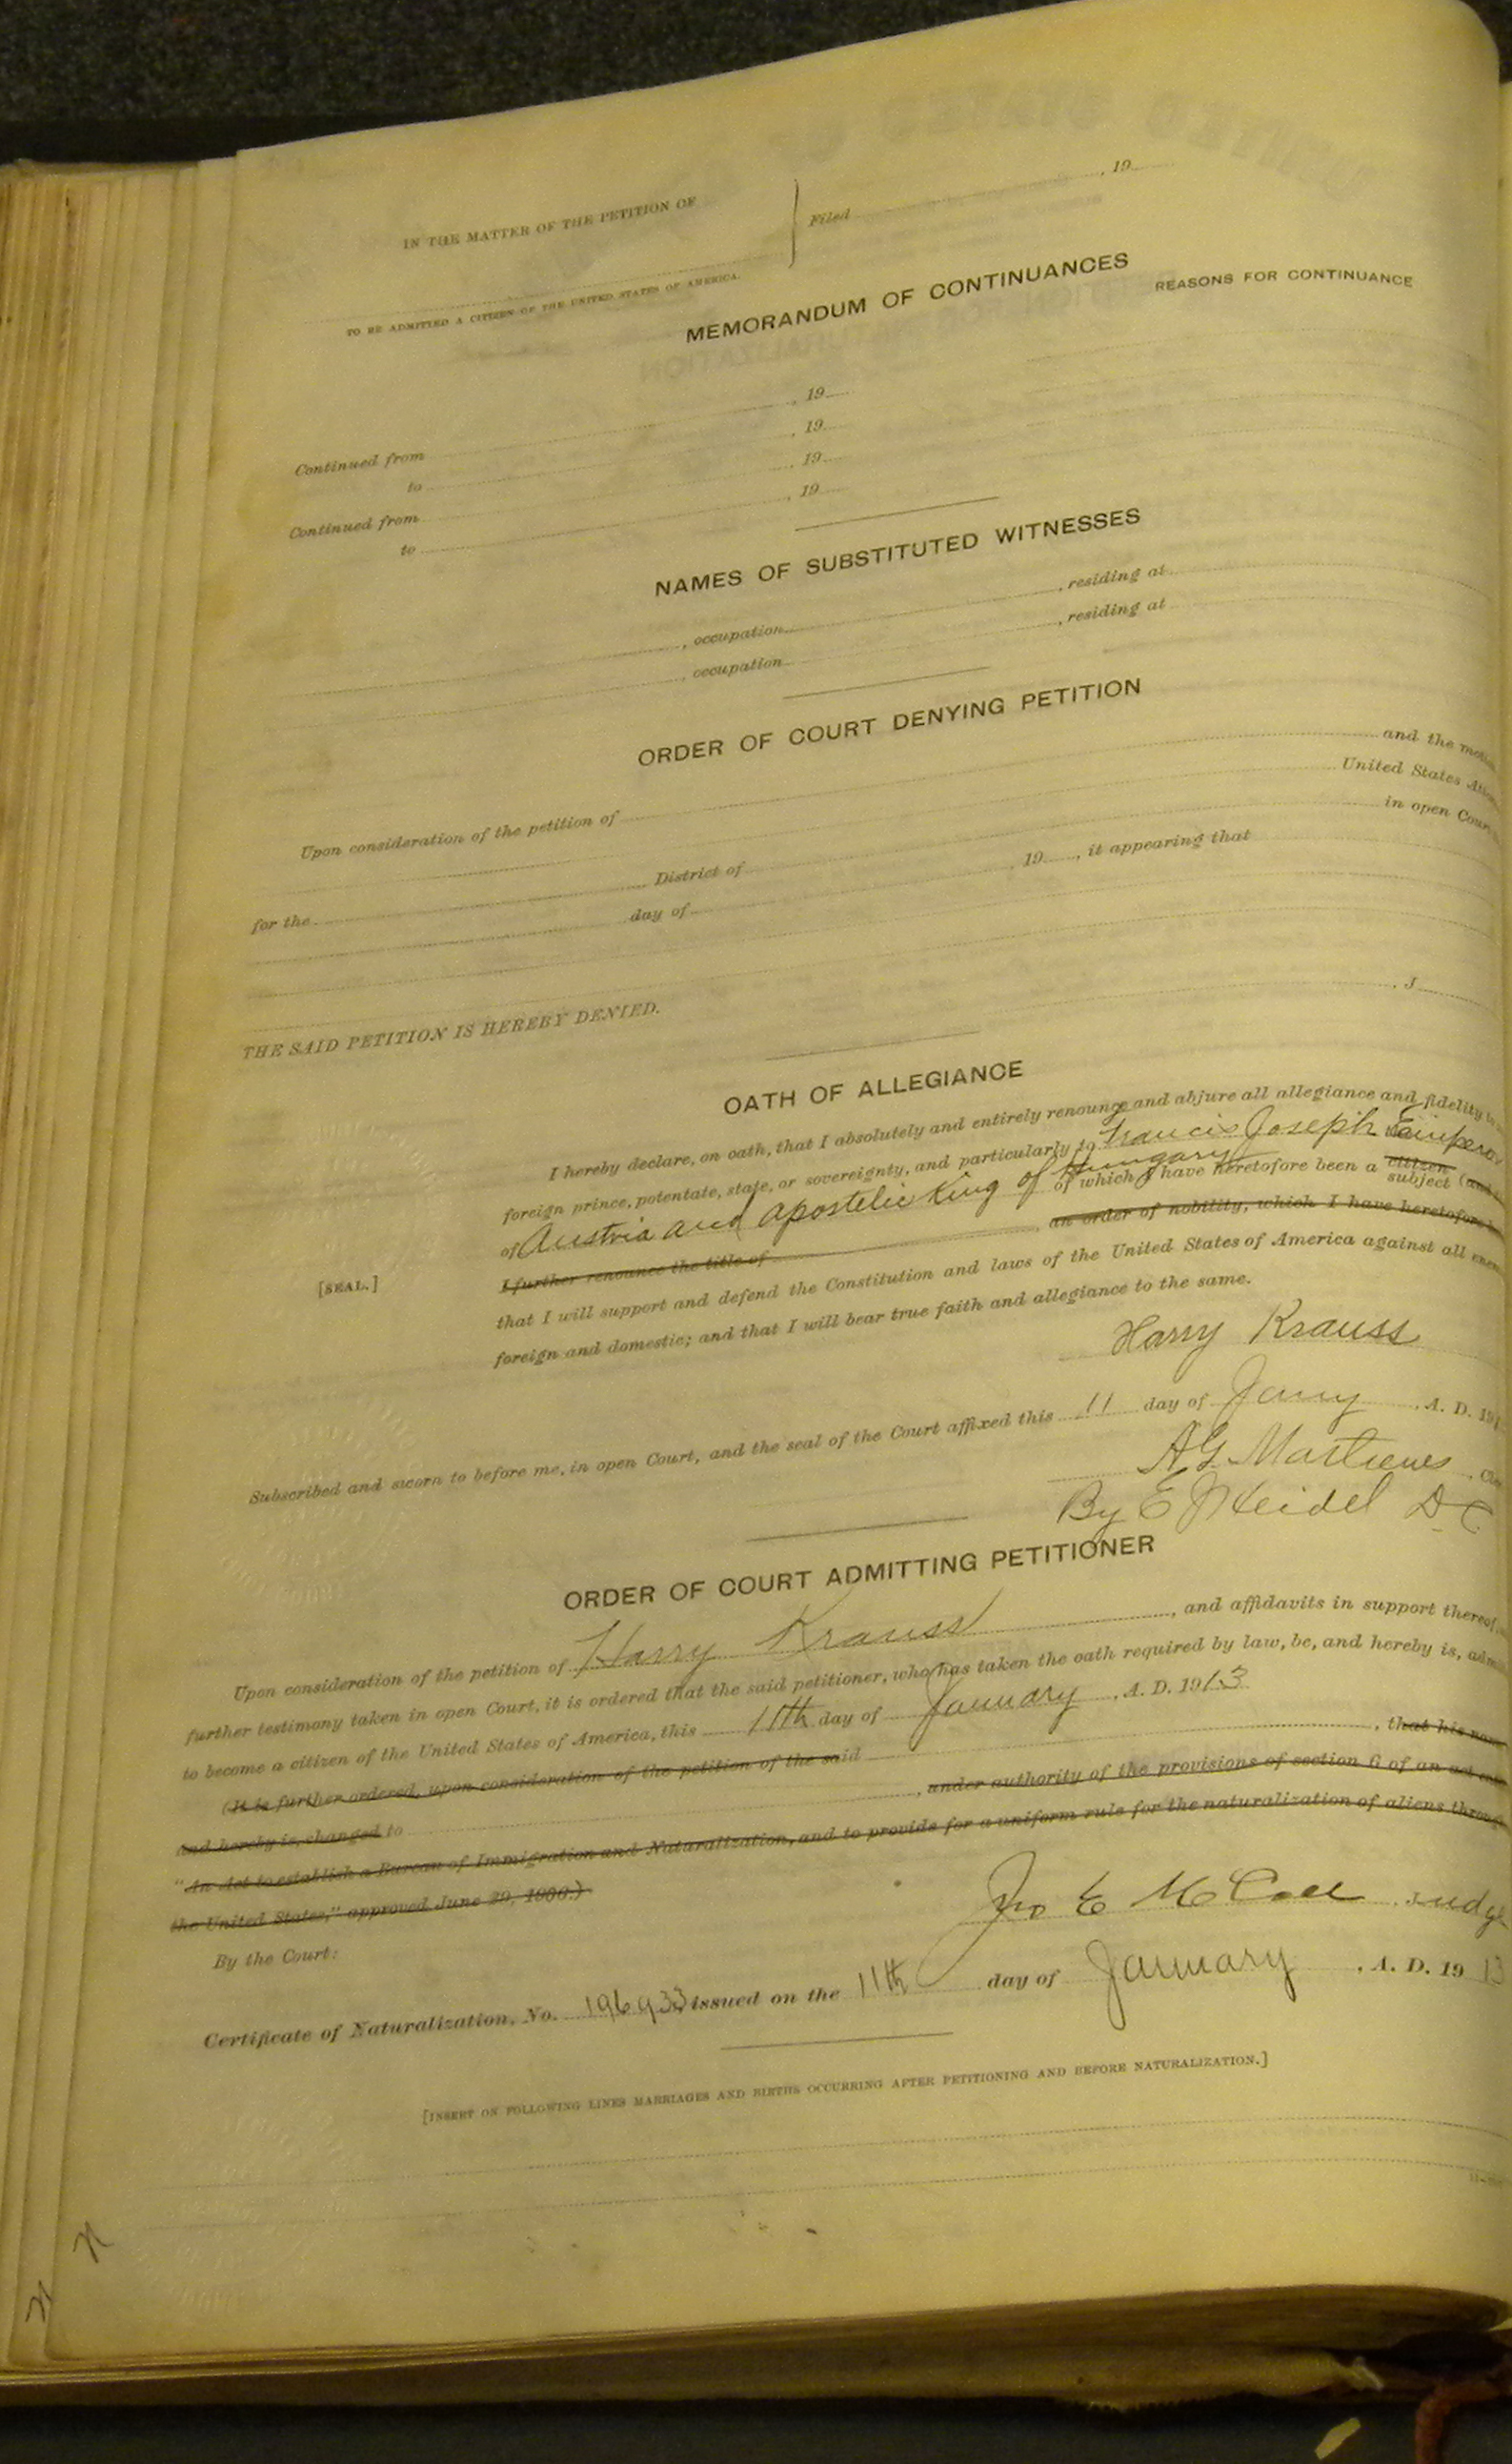 IN THE MATTER OF THE PETITION OF
Filed , 19
TO BE ADMITTED A CITIZEN OF THE UNITED STATES OF AMERICA.
MEMORANDUM OF CONTINUANCES
REASONS FOR CONTINUANCE
Continued from , 19
to , 19
Continued from , 19
to , 19
NAMES OF SUBSTITUTED WITNESSES
, occupation , residing at
, occupation , residing at
ORDER OF COURT DENYING PETITION
Upon consideration of the petition of and the
United States
for the District of in open
day of , 19 , it appearing that
THE SAID PETITION IS HEREBY DENIED.
, J
OATH OF ALLEGIANCE
I hereby declare, on oath, that I absolutely and entirely renounce and abjure all allegiance and fidelity
foreign prince, potentate, state, or sovereignty, and particularly to Francis Joseph Emperor
of Austria and apostolic King of Hungary of which I have heretofore been a citizen subject
I further renounce the title of , an order of nobility, which I have heretofore
that I will support and defend the Constitution and laws of the United States of America against all
foreign and domestic; and that I will bear true faith and allegiance to the same.
[SEAL.]
Harry Krauss
Subscribed and sworn to before me, in open Court, and the seal of the Court affixed this 11 day of Jany , A. D. 191
A G Matthews
By E J Heidel D C
ORDER OF COURT ADMITTING PETITIONER
Upon consideration of the petition of Harry Krauss , and affidavits in support thereof
further testimony taken in open Court, it is ordered that the said petitioner, who has taken the oath required by law, be, and hereby is,
to become a citizen of the United States of America, this 11th day of January , A. D. 1913
(It is further ordered, upon consideration of the petition of the said , that his
and hereby is, changed to , under authority of the provisions of section 6 of an act
"An Act to establish a Bureau of Immigration and Naturalization, and to provide for a uniform rule for the naturalization of aliens
the United States," approved June 29, 1906.)
By the Court:
Jno E McCall Judge
Certificate of Naturalization, No. 196933 issued on the 11th day of January , A. D. 19 13
[INSERT ON FOLLOWING LINES MARRIAGES AND BIRTHS OCCURRING AFTER PETITIONING AND BEFORE NATURALIZATION.]